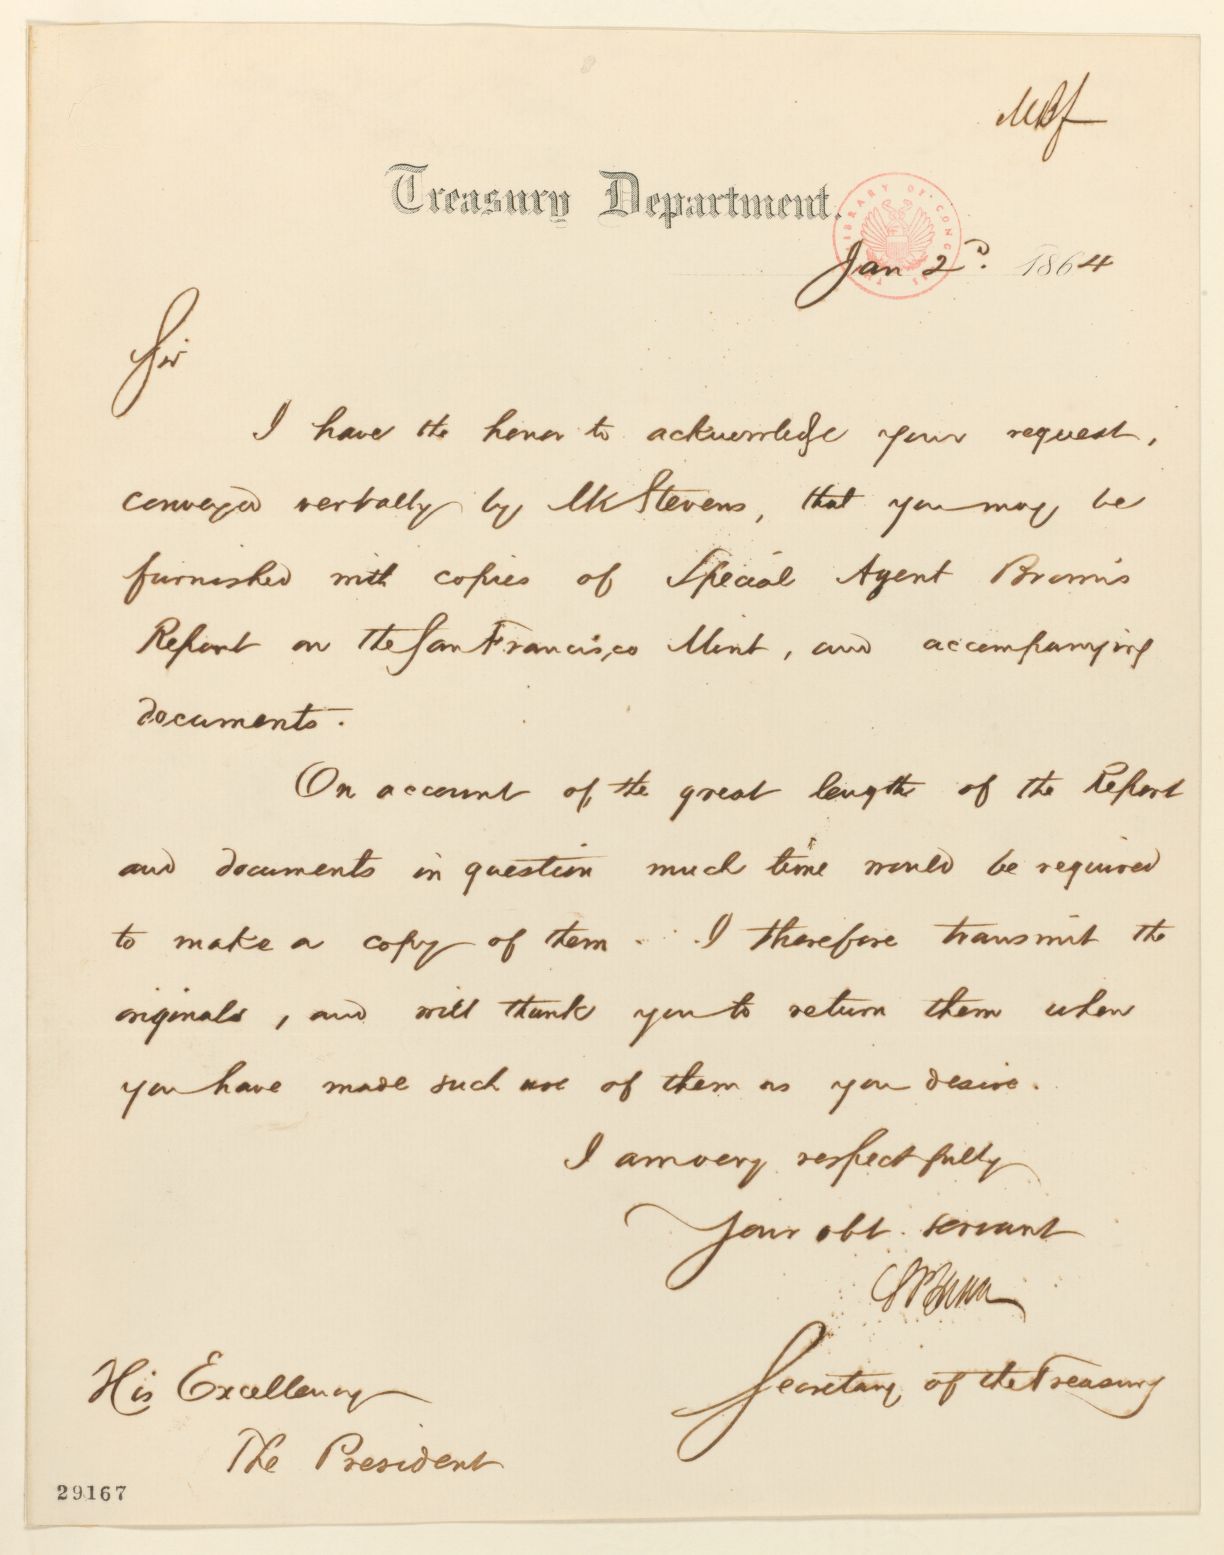 MBf
Treasury Department.
Jan 2d. 1864
LIBRARY OF CONGRESS
Sir
I have the honor to acknowledge your request,
conveyed verbally by Mr Stevens, that you may be
furnished with copies of Special Agent Brown's
Report on the San Francisco Mint, and accompanying
documents.
On account of the great length of the Report
and documents in question much time would be required
to make a copy of them. I therefore transmit the
originals, and will thank you to return them when
you have made such use of them as you desire.
I am very respectfully
Your obt. servant
Secretary of the Treasury
His Excellency
The President
29167